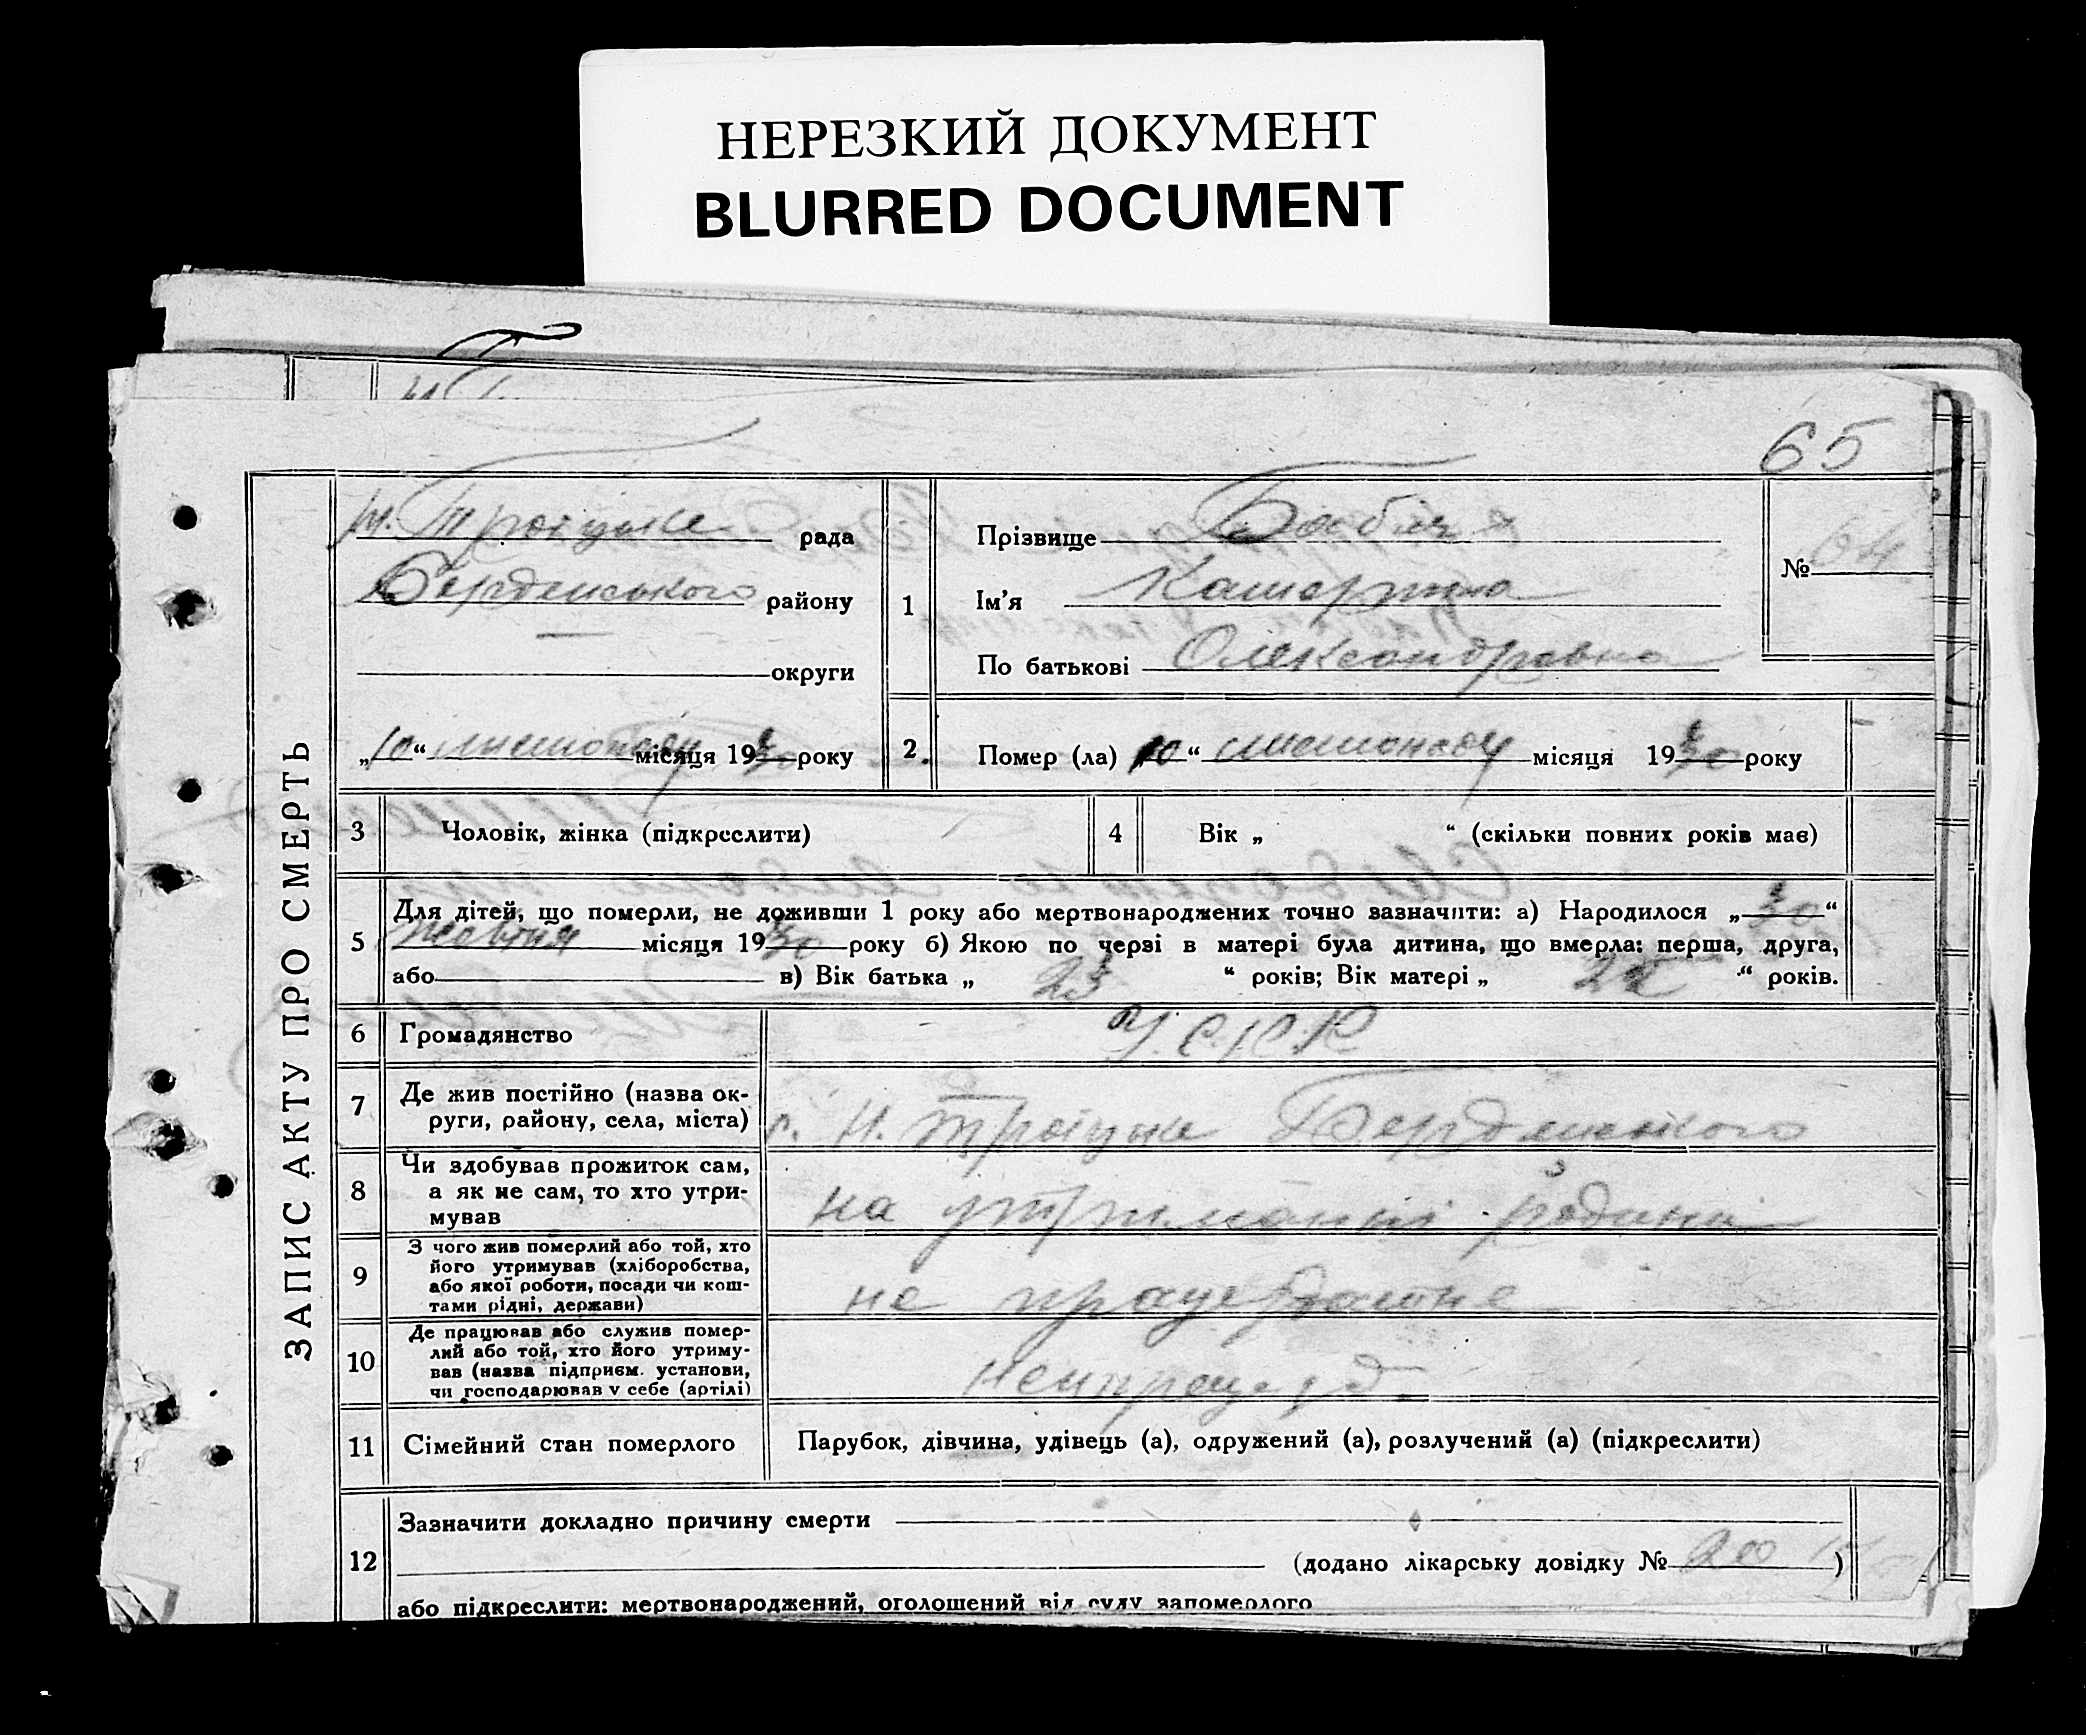 НЕРЕЗКИЙ ДОКУМЕНТ
BLURRED DOCUMENT
65
ЗАПИС АКТУ ПРО СМЕРТЬ
Троіцьке рада
Бердянського району
округи
„10“ листопаду місяця 1930 року
1
Прізвище
Ім’я Катерина
По батькові Олександровна
№ 64
2.
Помер (ла) „10“ листопаду місяця 1930 року
3 Чоловік, жінка (підкреслити)
4 Вік „ “ (скільки повних років має)
5 Для дітей, що померли, не доживши 1 року або мертвонароджених точно зазначити: а) Народилося „30“
жовтня місяця 1930 року б) Якою по черзі в матері була дитина, що вмерла: перша, друга,
або в) Вік батька „ 23 “ років; Вік матері „ “ років.
6 Громадянство У.С.Р.Р.
7 Де жив постійно (назва ок-
руги, району, села, міста) с. Н. Троіцьке Бердянського
8 Чи здобував прожиток сам,
а як не сам, то хто утри-
мував на утриманні родини
9 З чого жив померлий або той, хто
його утримував (хліборобства,
або якої роботи, посади чи кош-
тами рідні, держави) не працездатне
10 Де працював або служив помер-
лий або той, хто його утриму-
вав (назва підприєм. установи,
чи господарював у себе (артілі)
11 Сімейний стан померлого Парубок, дівчина, удівець (а), одружений (а), розлучений (а) (підкреслити)
12 Зазначити докладно причину смерти
(додано лікарську довідку № 200 )
або підкреслити: мертвонароджений, оголошений від суду запомерлого